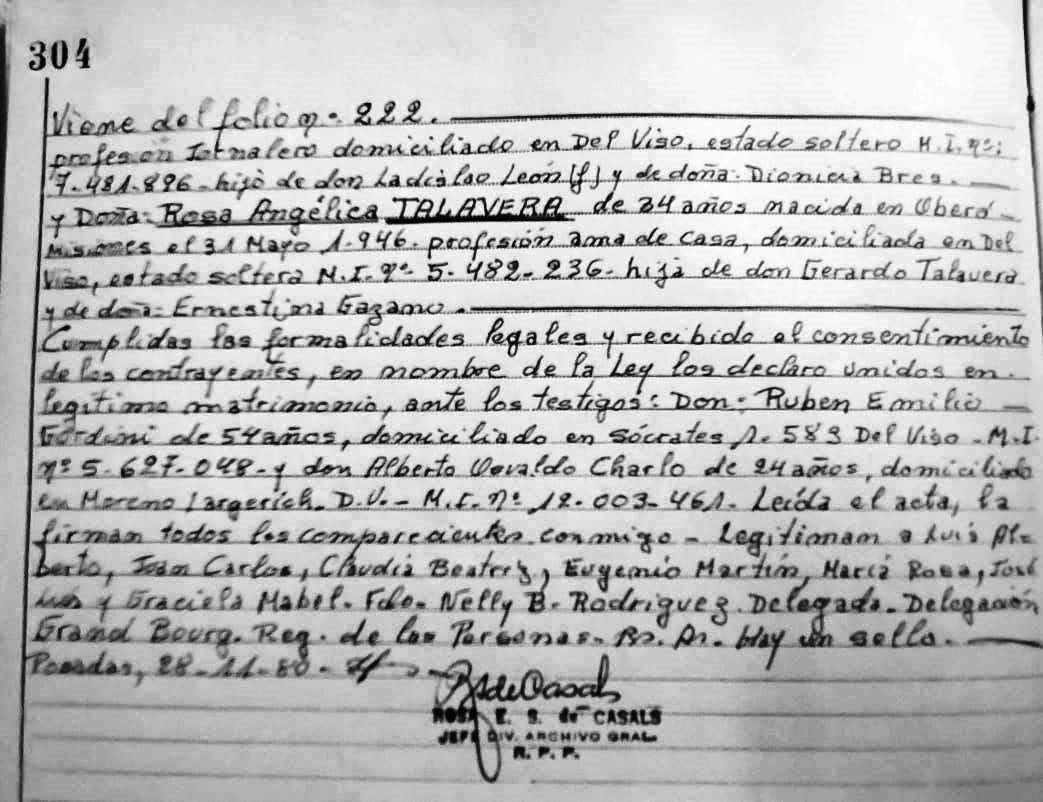 304
Viene del folio nº 222.
profesión Jornalero domiciliado en Del Viso, estado soltero M.I. nº:
7-481-896- hijo de don Ladislao León (f) y de doña: Dionicia Bres.
y Doña: Rosa Angélica TALAVERA de 34 años nacida en Oberá-
Misiones el 31 Mayo 1.946. profesión ama de casa, domiciliada en Del
Viso, estado soltera M.I. nº 5-482-236- hija de don Gerardo Talavera
y de doña: Ernestina Gazano.
Cumplidas las formalidades legales y recibido el consentimiento
de los contrayentes, en nombre de la Ley los declaro unidos en
legítimo matrimonio, ante los testigos: Don: Ruben Emilio
Gordini de 54 años, domiciliado en Sócrates 1.583 Del Viso - M.I.
nº 5-627-048- y don Alberto Osvaldo Charlo de 24 años, domiciliado
en Moreno Largerich. D.V.- M.I. nº 12-003-461. Leída el acta, la
firman todos los comparecientes conmigo - Legitiman a Luis Al-
berto, Juan Carlos, Claudia Beatriz, Eugenio Martín, María Rosa, José
Luis y Graciela Mabel. Fdo- Nelly B. Rodriguez. Delegada. Delegación
Grand Bourg. Reg. de las Personas. Bs. As. Hay un sello.
Posadas, 28-11-80-
RSdeCasals
ROSA E. S. de CASALS
JEFE DIV. ARCHIVO GRAL.
R. P. P.